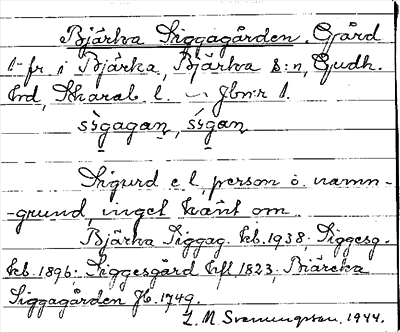 Bjärka Siggagården. Gård
1 fr. i Bjärka, Bjärka s:n, Gudh.
hrd, Skarab. l. Jbnr 1.
sìgagaṇ, sígaṇ
Sigurd e. l. person o. namn-
-grund, inget känt om
Bjärka Siggag. kb. 1938; Siggesg.
kb. 1896; Siggesgård hfl. 1823; Biärcka
Siggagården Jb. 1749.
1944.